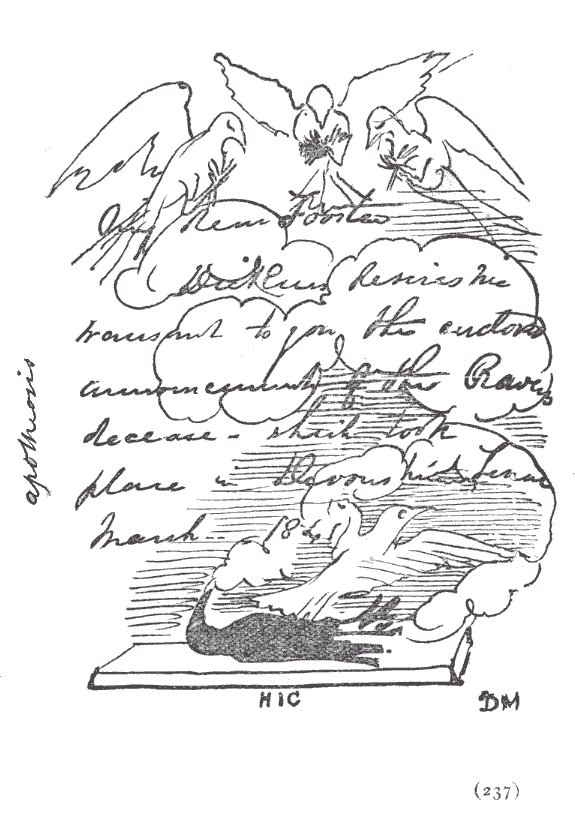 My dear Forster
Dickens desires me
transmit to you the enclosed
announcement of the Raven's
decease - which took
place in Devonshire Terrace
March 18
apotheosis
HIC
DM
(237)